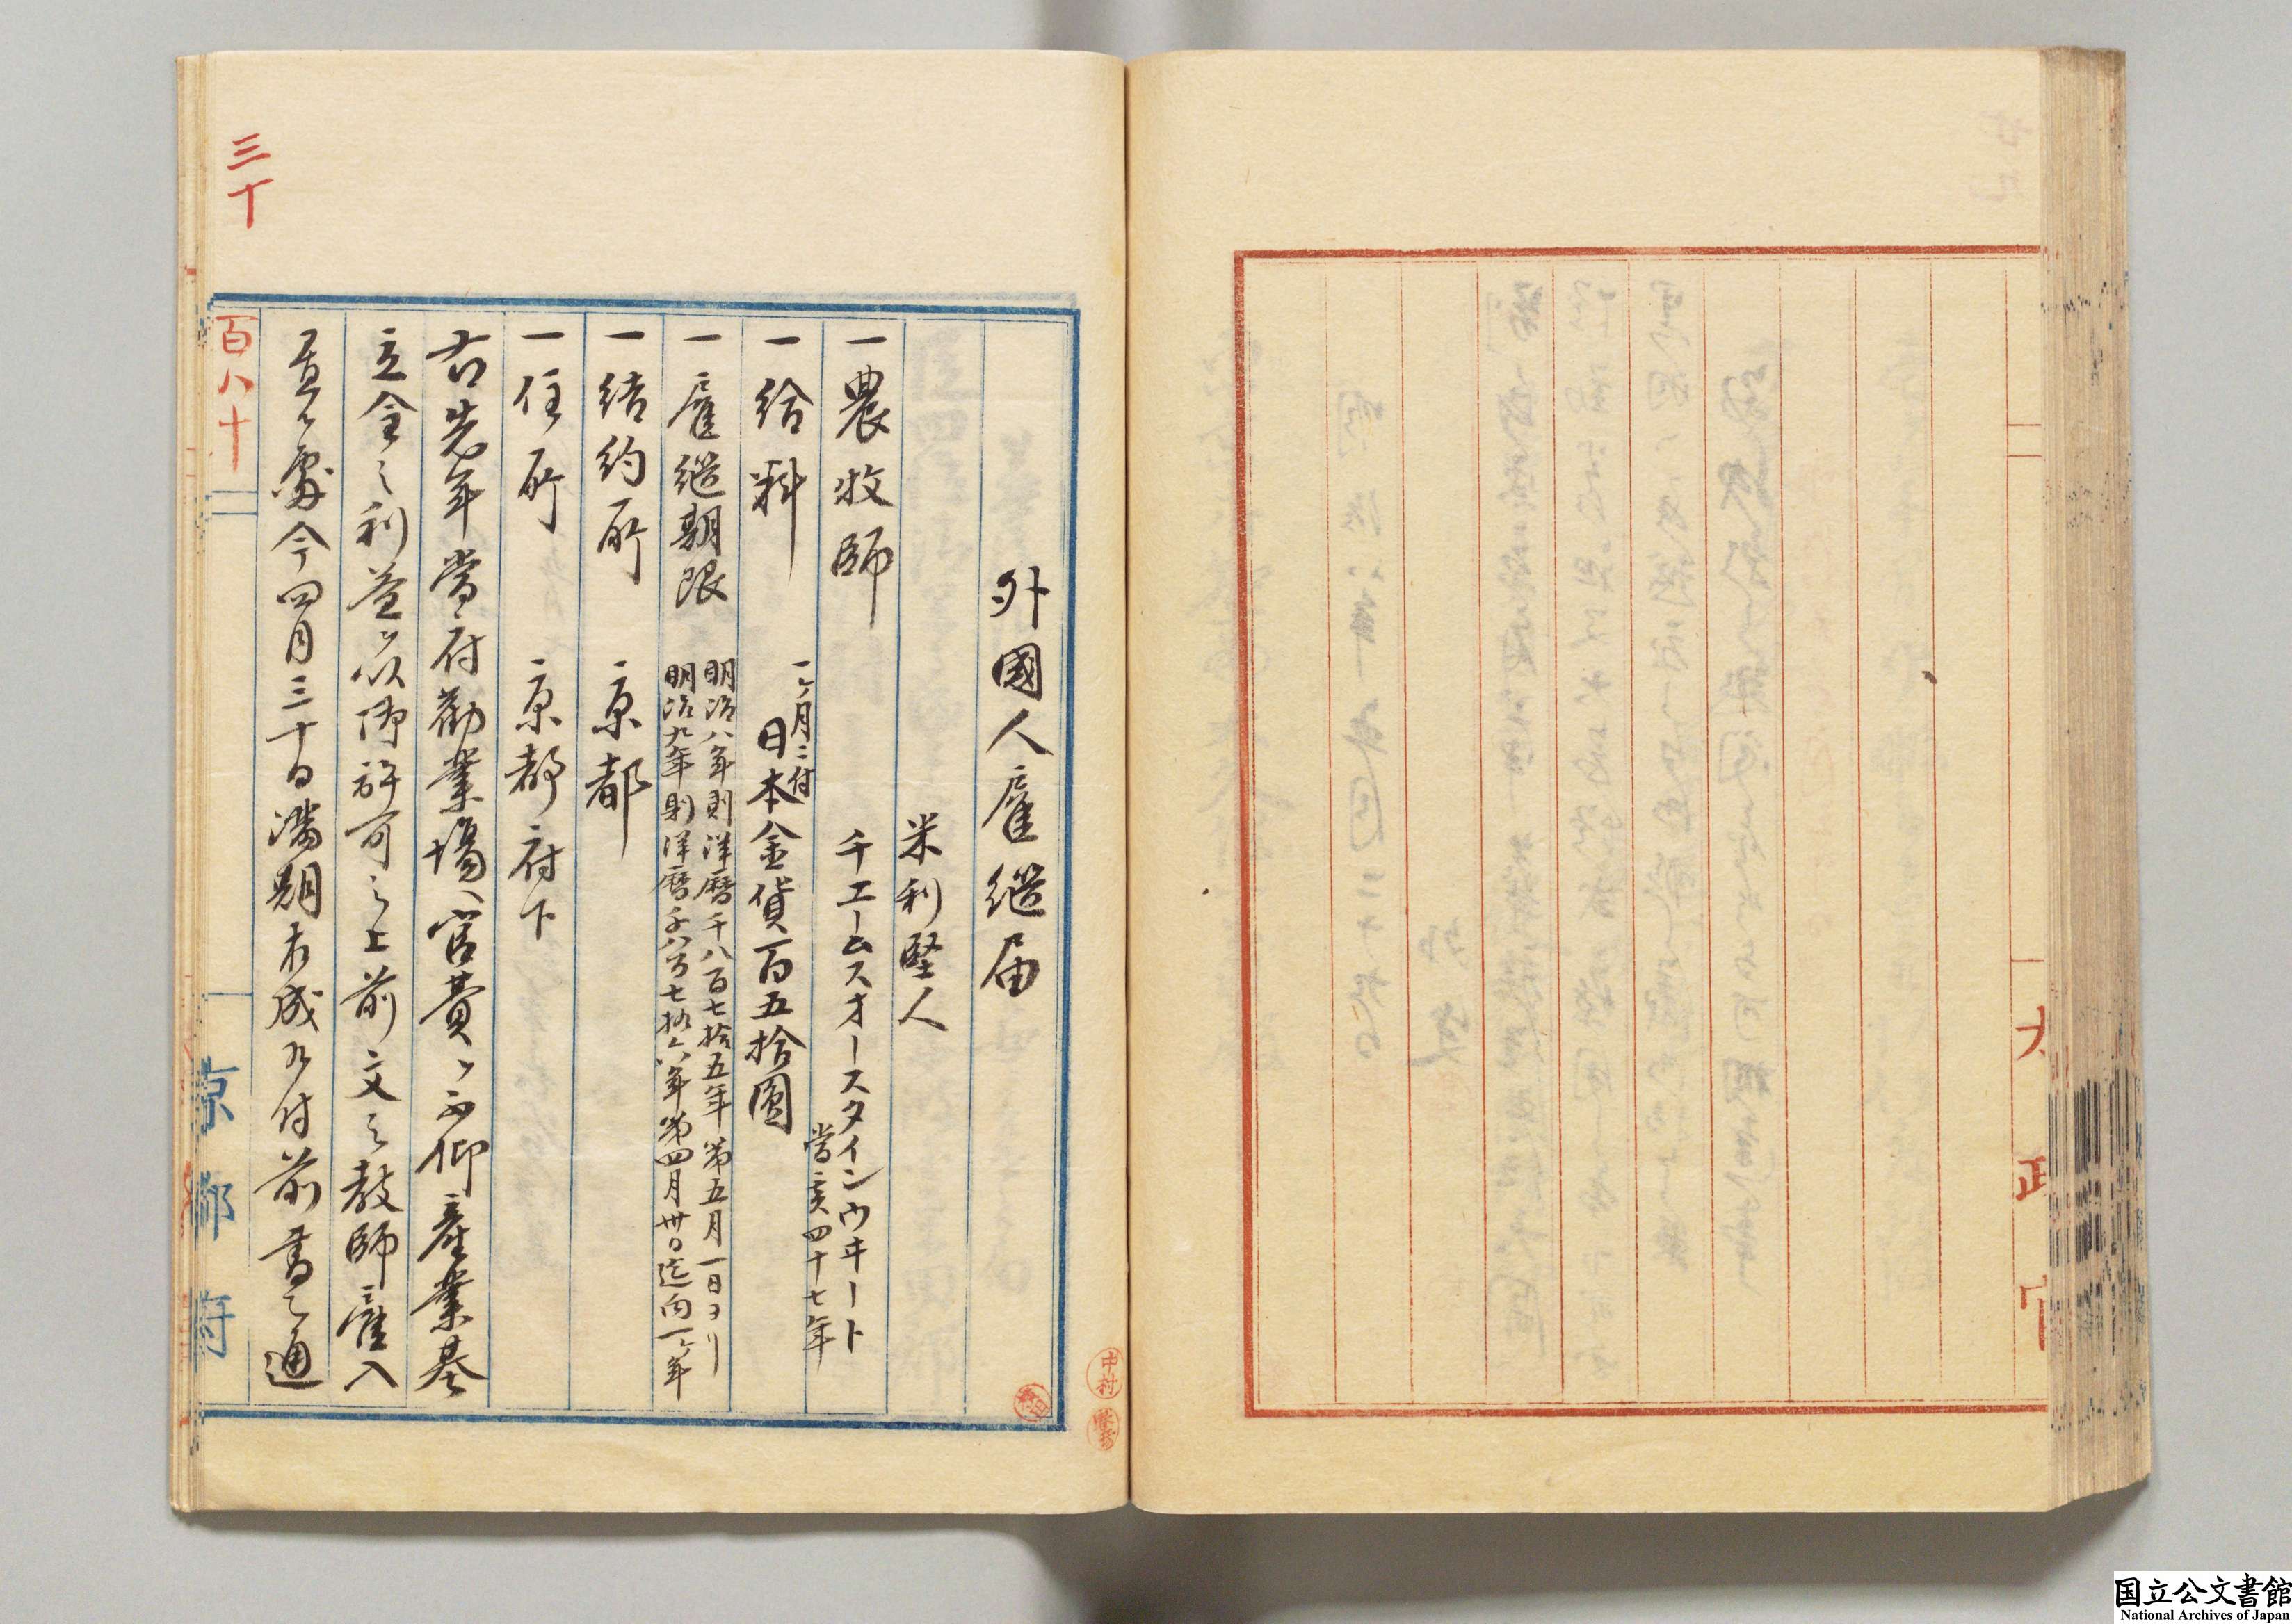 外國人雇継届
米利堅人
一農牧師
チエームスオースタインウヰード
當亥四十七年
一給料
一ヶ月ニ付
日本金貨百五拾圓
一雇継期限
明治八年則洋暦千八百七拾五年第五月一日ヨリ
明治九年則洋暦千八百七拾六年第四月卅日迄向一ヶ年
一結約所 京都
一住所 京都府下
右先年當府勸業場ヘ官費ヲ不仰産業基
立金之利益ヲ以御許可之上前文之教師雇入
置候處今四月三十日満期相成候付前書之通
三十
百八十
京都府
太政官
中村
国立公文書館
National Archives of Japan